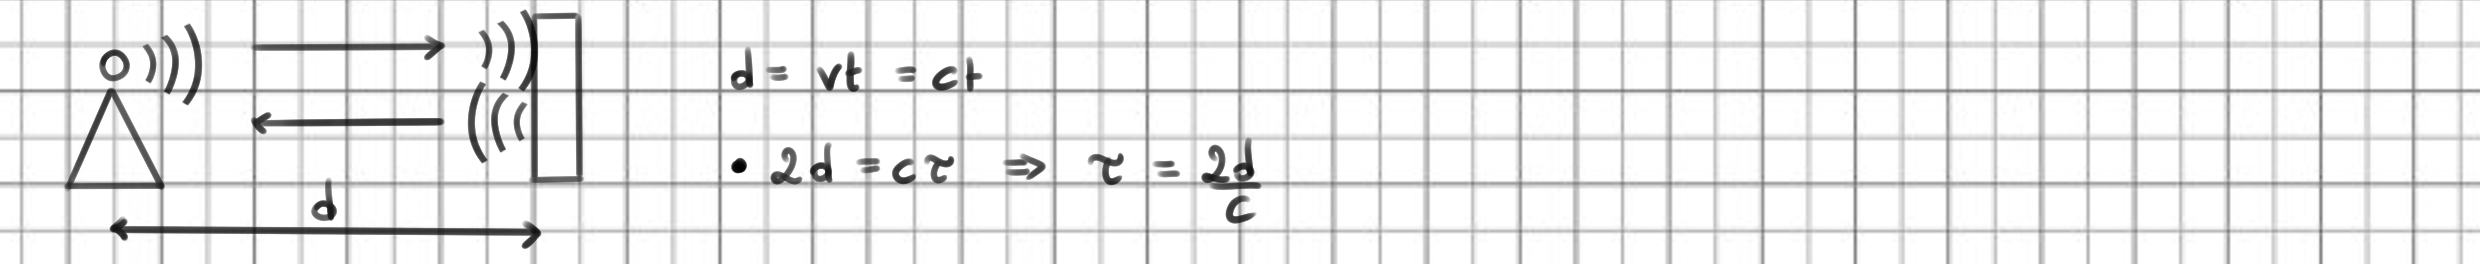 d = vt = ct
• 2d = cτ ⇒ τ = 2d/c
d